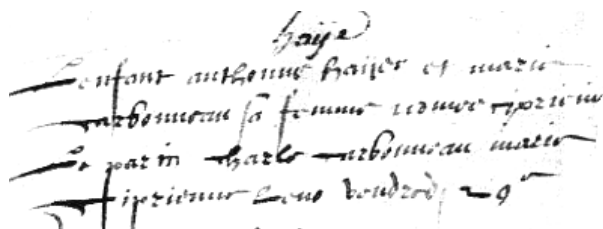 haije
Lenfant anthoinne haijes et marie
Carbonneau sa femme nomme ciprien
Le parin charle Carbonneau marie
Ciprienne Leus vendredi 29